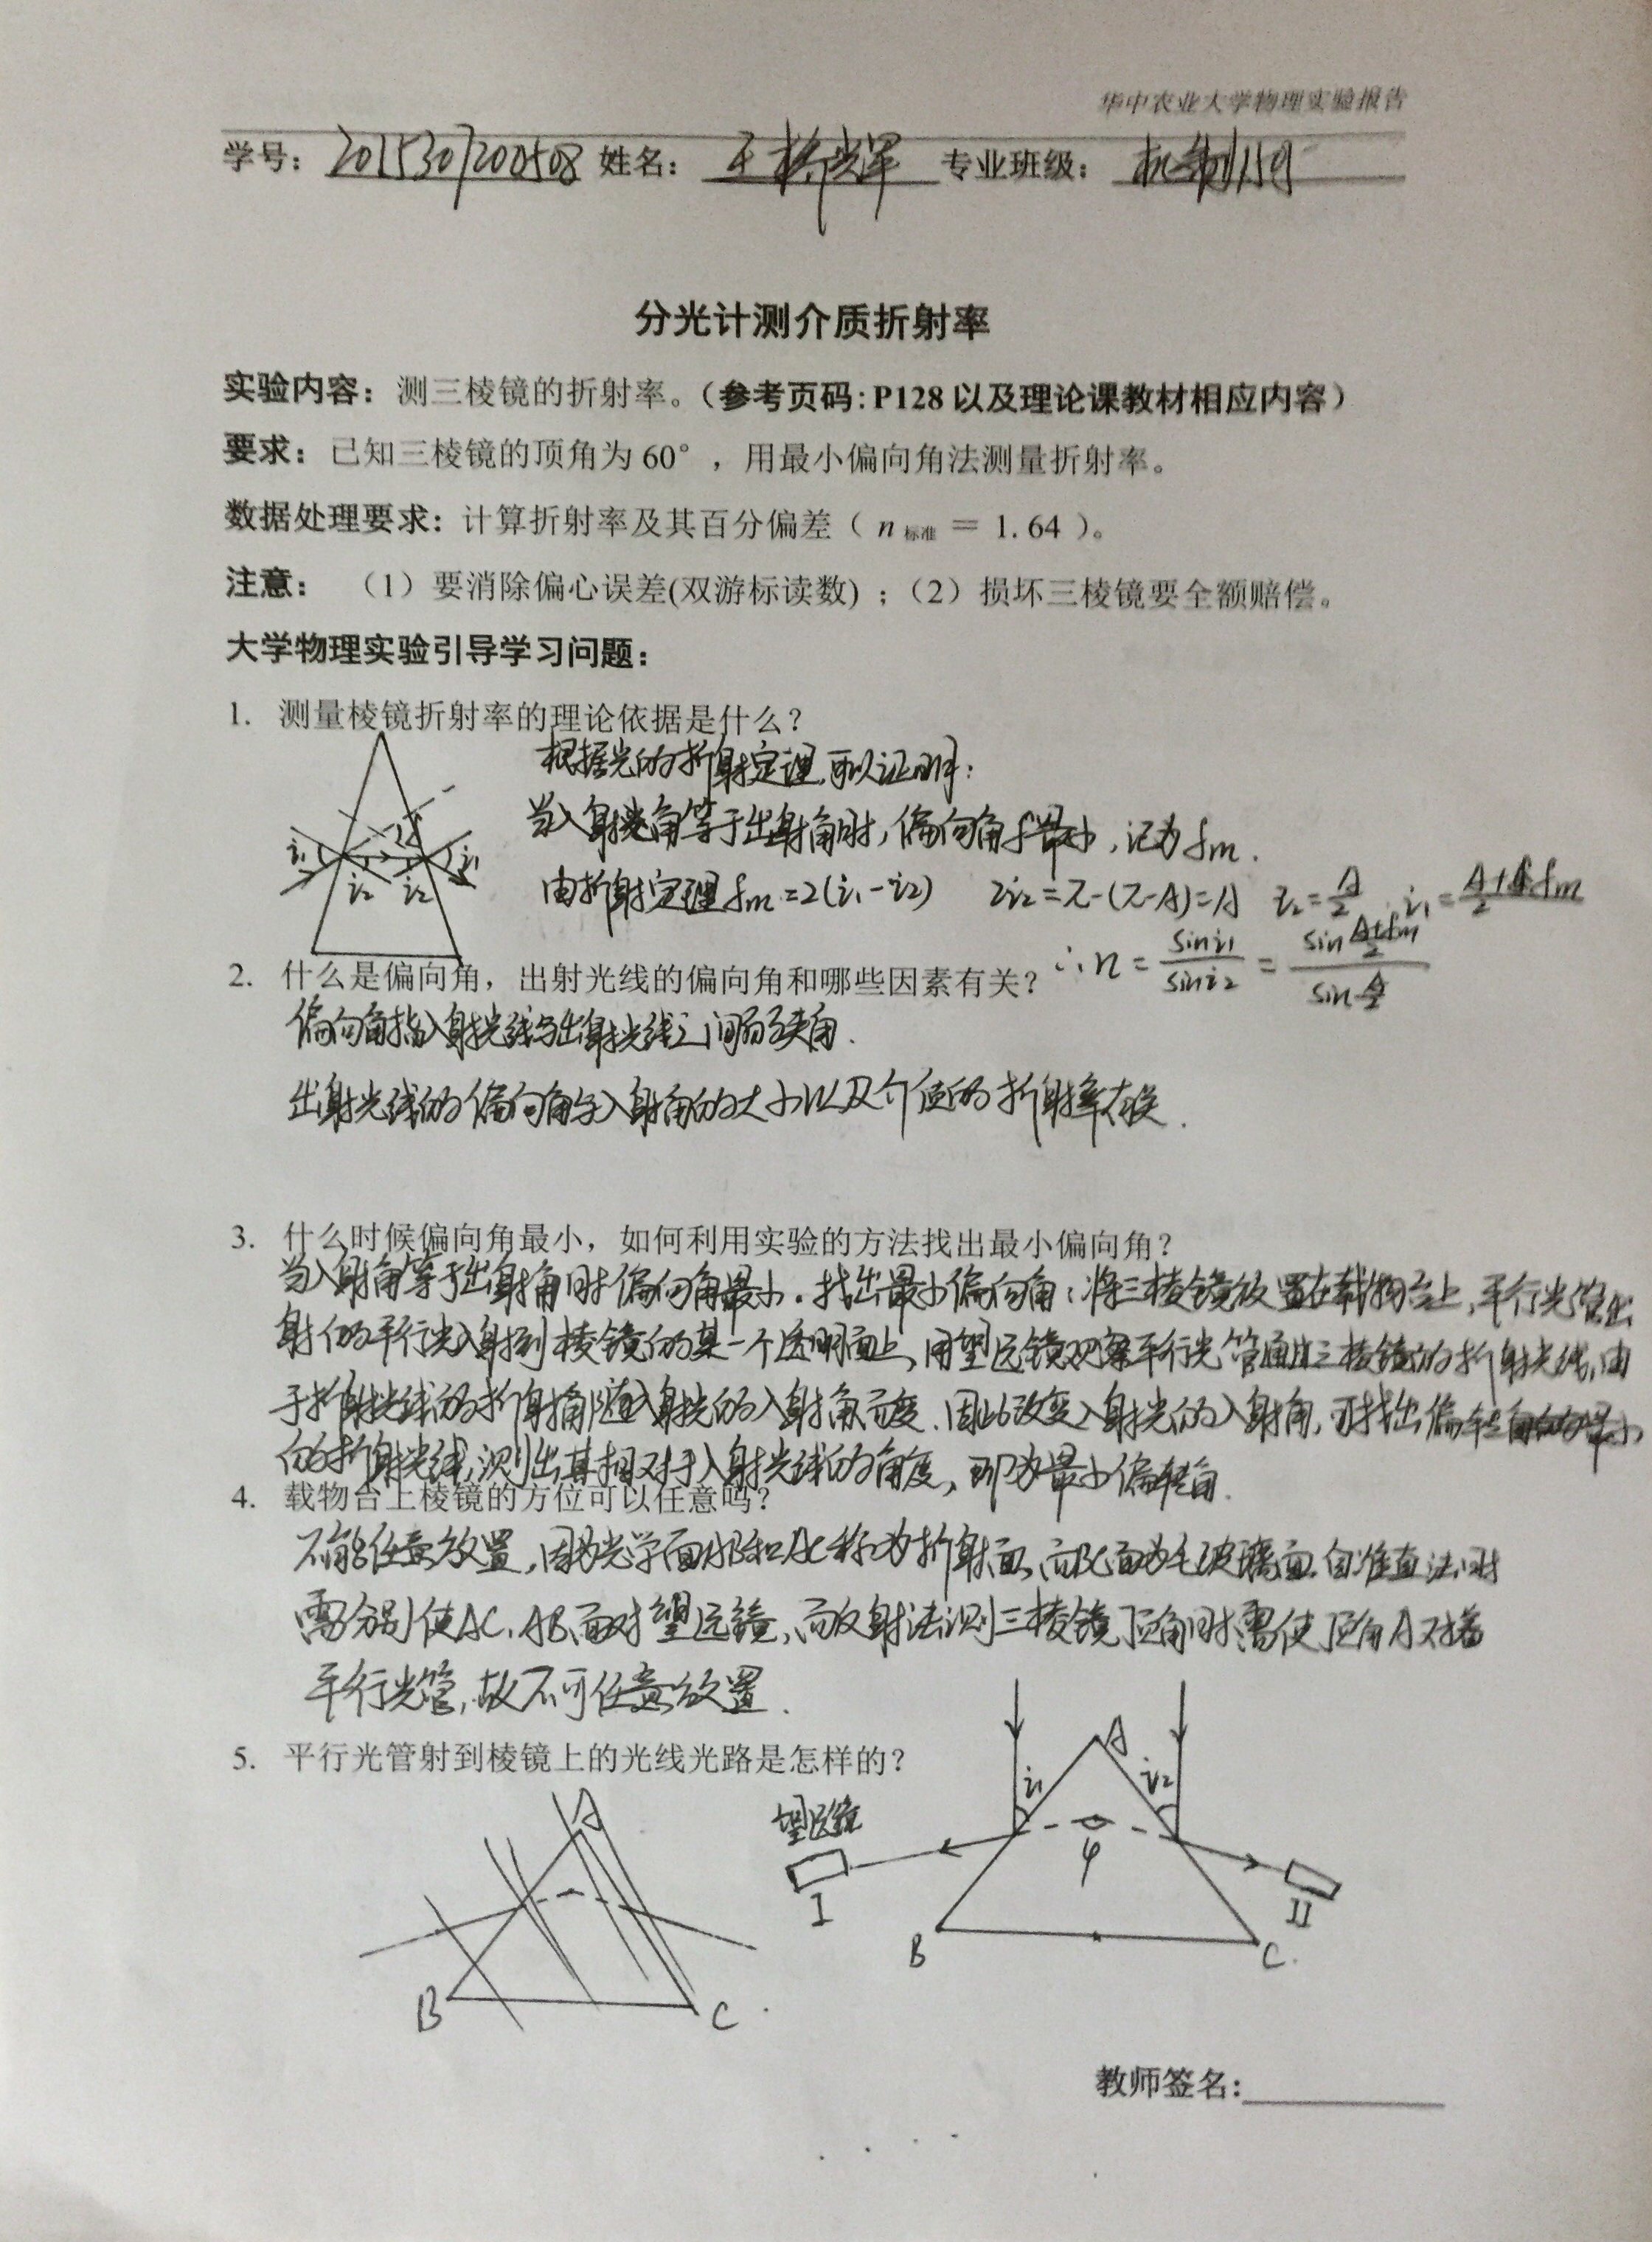 华中农业大学物理实验报告
学号: 2015307200508 姓名: 王桥辉 专业班级:
分光计测介质折射率
实验内容: 测三棱镜的折射率。(参考页码: P128 以及理论课教材相应内容)
要求: 已知三棱镜的顶角为 60°，用最小偏向角法测量折射率。
数据处理要求: 计算折射率及其百分偏差（ n 标准 = 1.64 ）。
注意: （1）要消除偏心误差(双游标读数)；（2）损坏三棱镜要全额赔偿。
大学物理实验引导学习问题:
1. 测量棱镜折射率的理论依据是什么?
根据光的折射定理,可以证明:
当入射光角等于出射角时,偏向角δ最小,记为δm.
由折射定理δm=2(i₁-i₂) 2i₂=π-(π-A)=A i₂=A/2 i₁=(A+δm)/2
∴n=sini₁/sini₂=sin((A+δm)/2)/sin(A/2)
i₁ i₂ i₂ i₁ δ
2. 什么是偏向角，出射光线的偏向角和哪些因素有关?
偏向角指入射光线与出射光线之间的夹角.
出射光线的偏向角与入射角的大小以及介质的折射率有关.
3. 什么时候偏向角最小，如何利用实验的方法找出最小偏向角?
当入射角等于出射角时偏向角最小.找出最小偏向角:将三棱镜放置在载物台上,平行光管出
射的平行光入射到棱镜的某一个透明面上,用望远镜观察平行光管通过三棱镜的折射光线,由
于折射光线的折射角随入射光的入射角而变.因此改变入射光的入射角,可找出偏转角最小
的折射光线,测出其相对于入射光线的角度,即为最小偏转角.
4. 载物台上棱镜的方位可以任意吗?
不能任意放置,因为光学面AB和AC称为折射面,而BC面为毛玻璃面.自准直法时
需分别使AC、AB面对望远镜,而反射法测三棱镜顶角时需使顶角A对着
平行光管,故不可任意放置.
5. 平行光管射到棱镜上的光线光路是怎样的?
A B C
望远镜 I A i₁ i₂ φ II B C
教师签名: